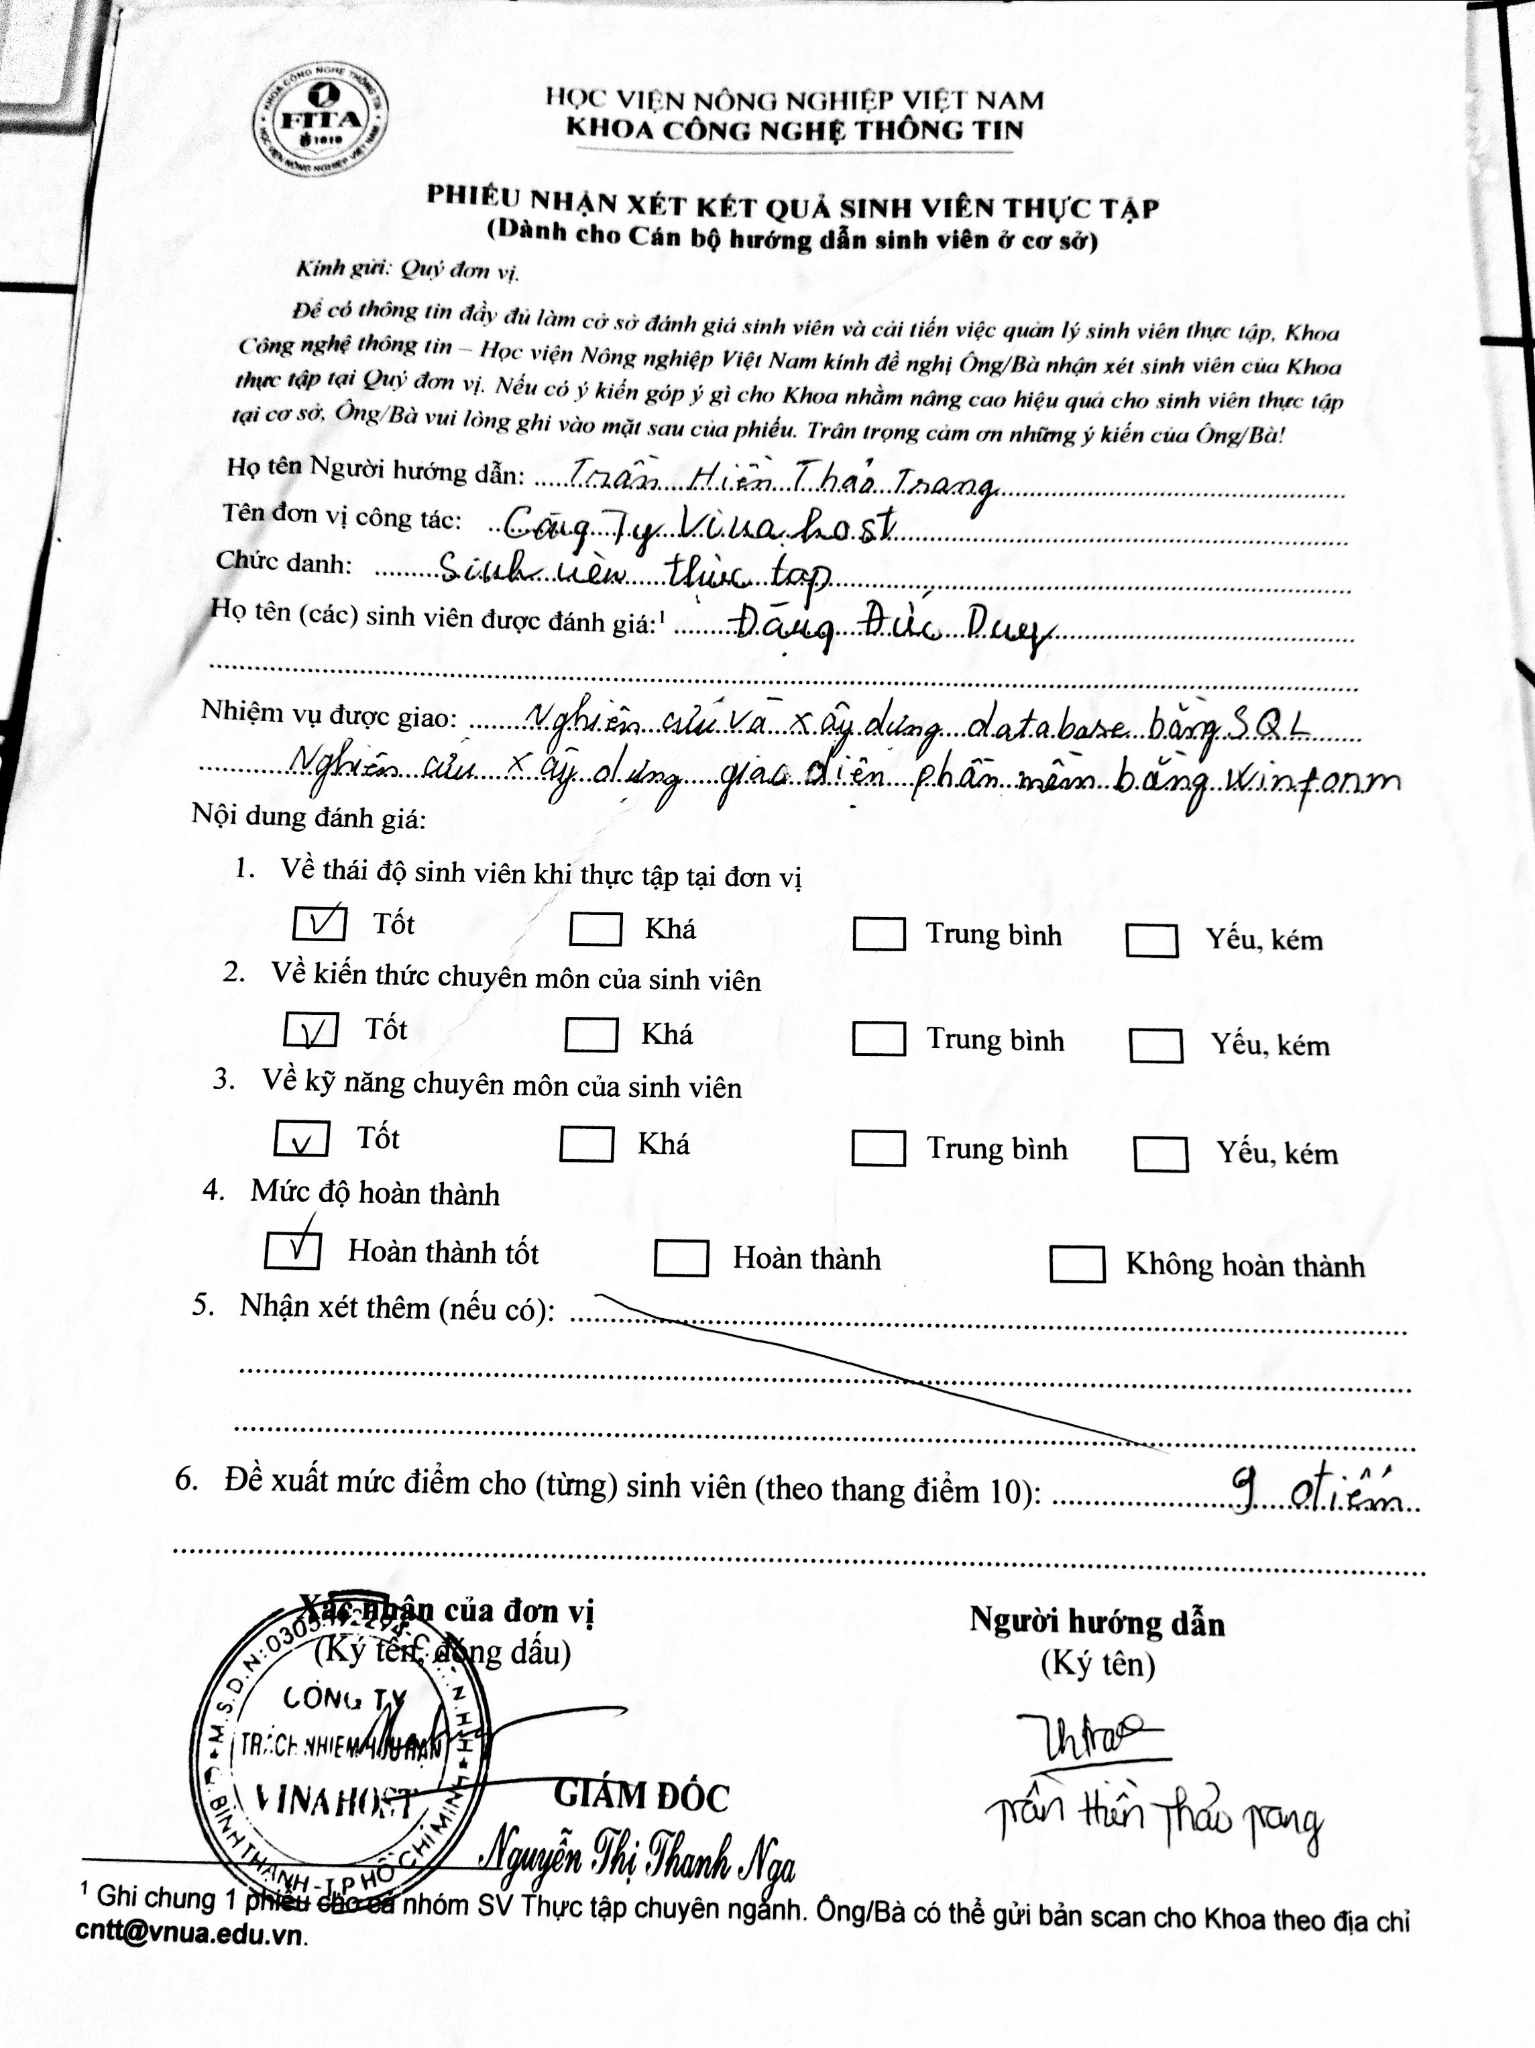 KHOA CÔNG NGHỆ THÔNG TIN
FITA
1010
HỌC VIỆN NÔNG NGHIỆP VIỆT NAM
HỌC VIỆN NÔNG NGHIỆP VIỆT NAM
KHOA CÔNG NGHỆ THÔNG TIN
PHIẾU NHẬN XÉT KẾT QUẢ SINH VIÊN THỰC TẬP
(Dành cho Cán bộ hướng dẫn sinh viên ở cơ sở)
Kính gửi: Quý đơn vị.
Để có thông tin đầy đủ làm cở sở đánh giá sinh viên và cải tiến việc quản lý sinh viên thực tập, Khoa
Công nghệ thông tin – Học viện Nông nghiệp Việt Nam kính đề nghị Ông/Bà nhận xét sinh viên của Khoa
thực tập tại Quý đơn vị. Nếu có ý kiến góp ý gì cho Khoa nhằm nâng cao hiệu quả cho sinh viên thực tập
tại cơ sở, Ông/Bà vui lòng ghi vào mặt sau của phiếu. Trân trọng cảm ơn những ý kiến của Ông/Bà!
Họ tên Người hướng dẫn: Trần Hiền Thảo Trang
Tên đơn vị công tác: Công Ty Vinahost
Chức danh: Sinh viên thực tập
Họ tên (các) sinh viên được đánh giá:¹ Đặng Đức Duy
Nhiệm vụ được giao: Nghiên cứu và xây dựng database bằng SQL
Nghiên cứu xây dựng giao diện phần mềm bằng winform
Nội dung đánh giá:
1. Về thái độ sinh viên khi thực tập tại đơn vị
Tốt Khá Trung bình Yếu, kém
2. Về kiến thức chuyên môn của sinh viên
Tốt Khá Trung bình Yếu, kém
3. Về kỹ năng chuyên môn của sinh viên
Tốt Khá Trung bình Yếu, kém
4. Mức độ hoàn thành
Hoàn thành tốt Hoàn thành Không hoàn thành
5. Nhận xét thêm (nếu có):
6. Đề xuất mức điểm cho (từng) sinh viên (theo thang điểm 10): 9 điểm
Xác nhận của đơn vị
(Ký tên, đóng dấu)
Người hướng dẫn
(Ký tên)
M.S.D.N:
CÔNG TY
TRÁCH NHIỆM HỮU HẠN
VINAHOST
Q. BÌNH THẠNH - T.P HỒ CHÍ MINH
GIÁM ĐỐC
Nguyễn Thị Thanh Nga
Trần Hiền Thảo Trang
¹ Ghi chung 1 phiếu cho cả nhóm SV Thực tập chuyên ngành. Ông/Bà có thể gửi bản scan cho Khoa theo địa chỉ
cntt@vnua.edu.vn.